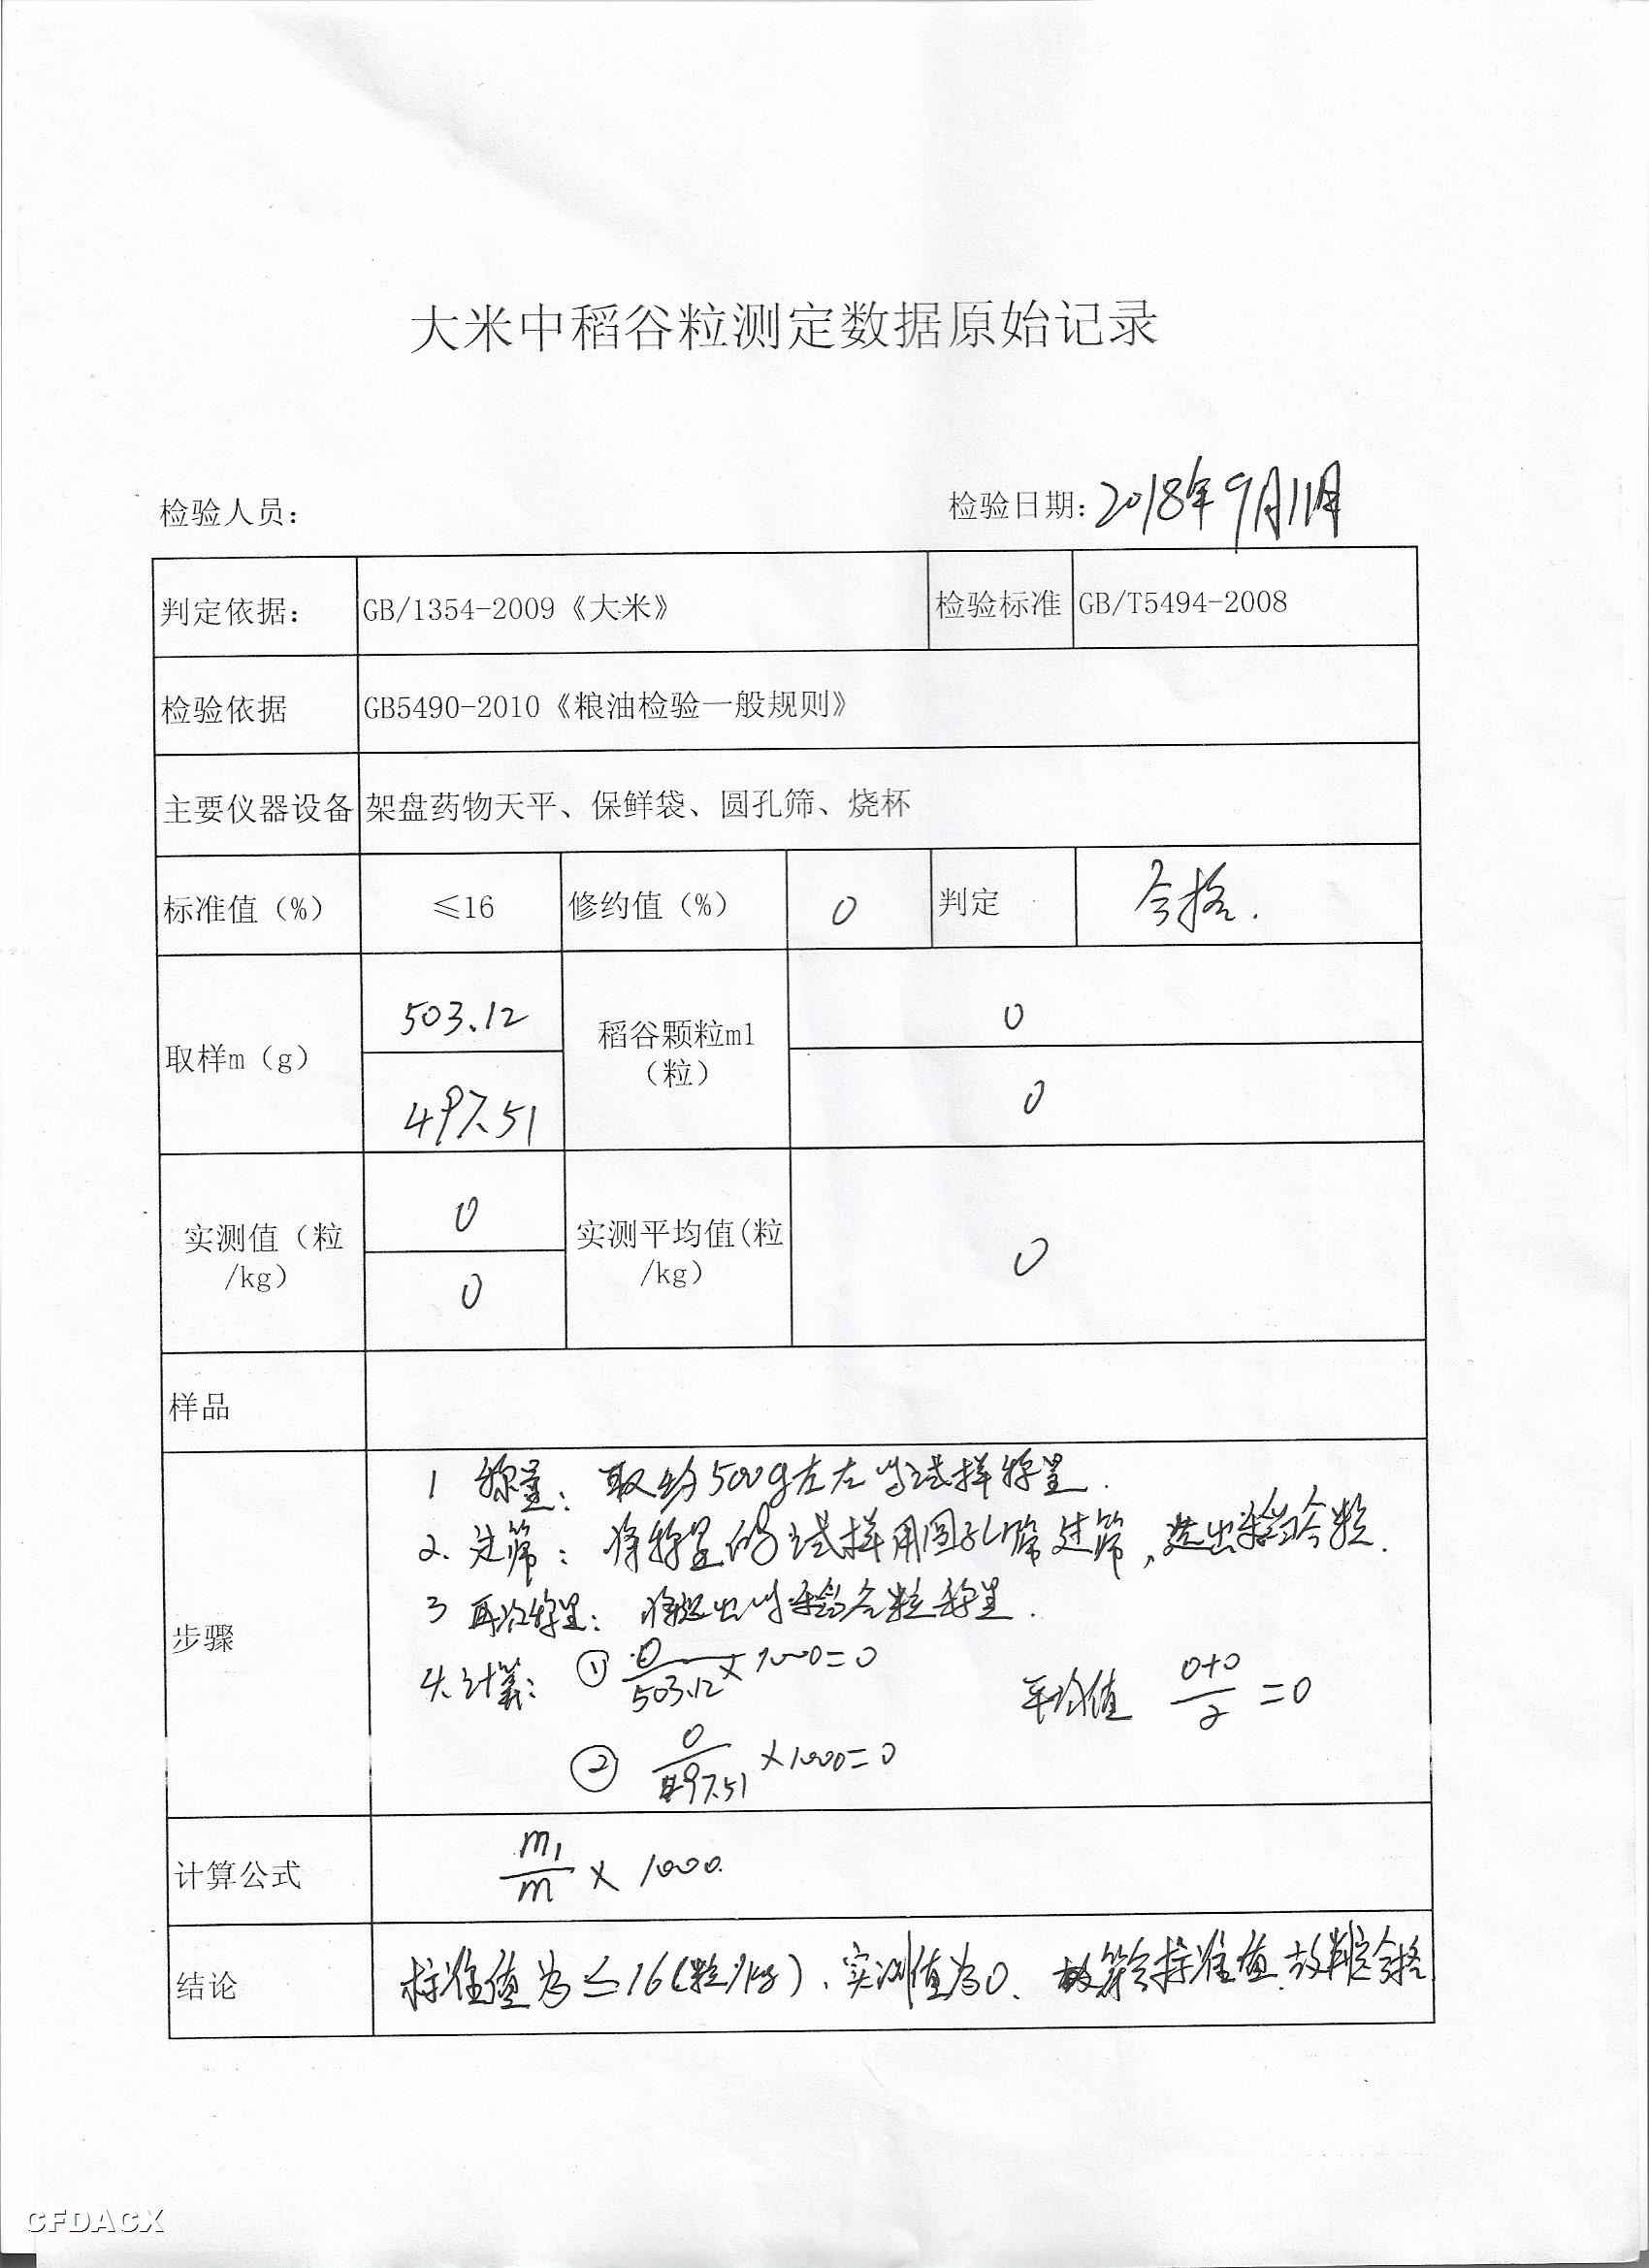 大米中稻谷粒测定数据原始记录
检验人员：
检验日期：2018年9月11日
判定依据： GB/1354-2009《大米》 检验标准 GB/T5494-2008
检验依据 GB5490-2010《粮油检验一般规则》
主要仪器设备 架盘药物天平、保鲜袋、圆孔筛、烧杯
标准值（%） ≤16 修约值（%） 0 判定 合格.
取样m（g） 503.12 稻谷颗粒m1（粒） 0
497.51 0
实测值（粒/kg） 0 实测平均值(粒/kg） 0
0
样品
步骤
1 称量： 取约500g左右的试样称量.
2. 过筛： 将称量的试样用圆孔筛过筛，选出稻谷粒.
3 再次称量： 将选出的稻谷粒称量.
4.计算： ① 0/503.12×1000=0 平均值 (0+0)/2=0
② 0/497.51×1000=0
计算公式 m1/m × 1000.
结论 标准值为≤16(粒/kg)、实测值为0、故符合标准值.故判定合格
CFDACX